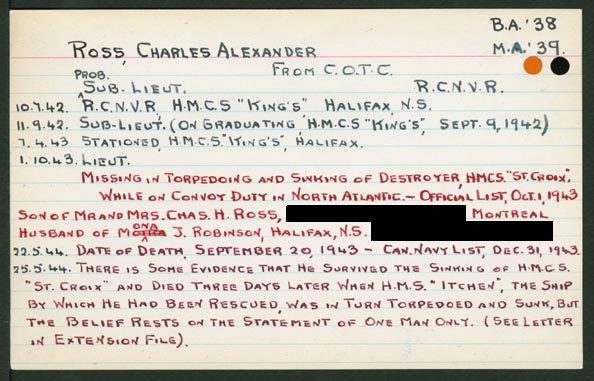 B.A. '38
ROSS, CHARLES ALEXANDER M.A. '39.
PROB. FROM C.O.T.C.
SUB. LIEUT. R.C.N.V.R.
10.7.42. R.C.N.V.R, H.M.C.S "KING'S" HALIFAX, N.S.
11.9.42. SUB-LIEUT. (ON GRADUATING, H.M.C.S "KING'S", SEPT. 9, 1942)
7.4.43 STATIONED, H.M.C.S. "KING'S", HALIFAX.
1.10.43. LIEUT.
MISSING IN TORPEDOING AND SINKING OF DESTROYER, HMCS. "ST. CROIX".
WHILE ON CONVOY DUTY IN NORTH ATLANTIC. – OFFICIAL LIST, OCT. 1, 1943
SON OF MR AND MRS. CHAS. H. ROSS, MONTREAL
HUSBAND OF MONA J. ROBINSON, HALIFAX, N.S.
22.5.44. DATE OF DEATH, SEPTEMBER 20, 1943 – CAN. NAVY LIST, DEC. 31, 1943.
25.5.44. THERE IS SOME EVIDENCE THAT HE SURVIVED THE SINKING OF H.M.C.S.
"ST. CROIX" AND DIED THREE DAYS LATER WHEN H.M.S. "ITCHEN", THE SHIP
BY WHICH HE HAD BEEN RESCUED, WAS IN TURN TORPEDOED AND SUNK, BUT
THE BELIEF RESTS ON THE STATEMENT OF ONE MAN ONLY. (SEE LETTER
IN EXTENSION FILE).